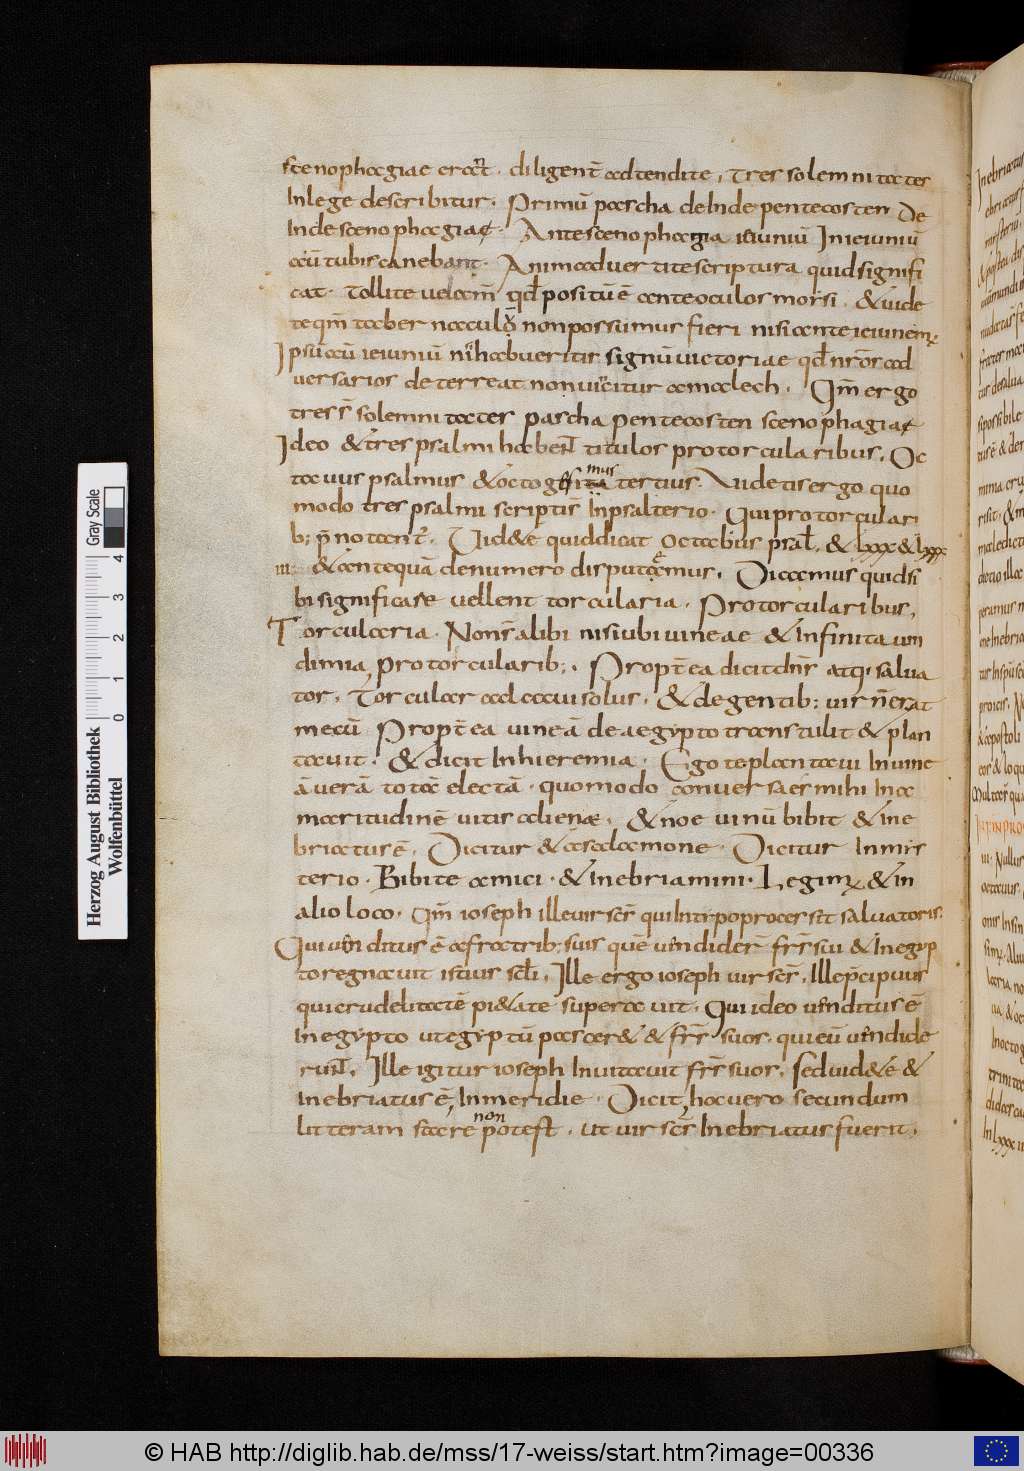 scenophagiae erat̅. diligent̅ adtendite, tres solemnitates
In lege describitur. Primu̅ pascha deInde pentecosten De
Inde scenophagiae. Ante scenophagia ieiuniu̅ In ieiuniu̅
cu̅ tubis canebant. Animaduertite scriptura quid signifi
cat. Tollite uelocit̅ positu̅ e̅ ante oculos morsi. & uide
non possumus fieri nisi ante ieiunem;
Ipsu̅ ieiuniu̅ habueritis signu̅ uictoriae qd̅ nr̅os ad
uersarios deterreat non uincitur amalech. Qm̅ ergo
tres s̅ solemnitates pascha pentecosten scenophagiae
Ideo & tres psalmi haben̅t titulos pro torcularibus. Oc
tauus psalmus & octogissimus tertius. Uidetis ergo quo
modo tres psalmi scripti s̅ In psalterio. Qui pro torculari
b; p̅notant̅. Uid&e quid dicat octabus psal̅. & lxxx & lxxx
iii & antequa̅ de numero disputemus. Dicamus quid si
bi significare uellent torcularia. Pro torcularibus,
Torcularia. Non s̅ alibi nisi ubi uineae & infinita uin
dimia, pro torcularib;. Propt̅ea dicit dn̅s atq; salua
tor. Torcular calcaui solus. & de gentib; uir n̅ erat
mecu̅ Propt̅ea uinea̅ de aegypto transtulit & plan
tauit. & dicit In hieremia. Ego te plantaui In uine
a̅ uera̅ tota̅ electa̅. quomodo conuersa es mihi In a
maritudine̅ uitis alienae. & noe uinu̅ bibit & ine
briatus e̅. Dicitur & a salamone. Dicitur In mis
terio. Bibite amici. & inebriamini. Legim; & in
alio loco. Qm̅ ioseph ille uir sc̅s qui In tipo processit saluatoris.
Qui uenditus e̅ a fratrib; suis que̅ uendider̅ fr̅s sui & In egyp
to regnauit istius sc̅li. Ille ergo ioseph uir sc̅s. Ille p̅cipuus
qui crudelitate̅ pi&ate superauit. Qui ideo uenditus e̅
In egypto ut egyptu̅ pascer& & fr̅s suos. qui eu̅ uendide
run̅t. Ille igitur ioseph Inuitauit fr̅s suos. sed uid&e &
Inebriatus e̅, In meridie. Dicit, hoc uero secundum
litteram stare non potest. ut uir sc̅s Inebriatus fuerit.
Herzog August Bibliothek
Wolfenbüttel
Gray Scale
0 1 2 3 4
© HAB http://diglib.hab.de/mss/17-weiss/start.htm?image=00336